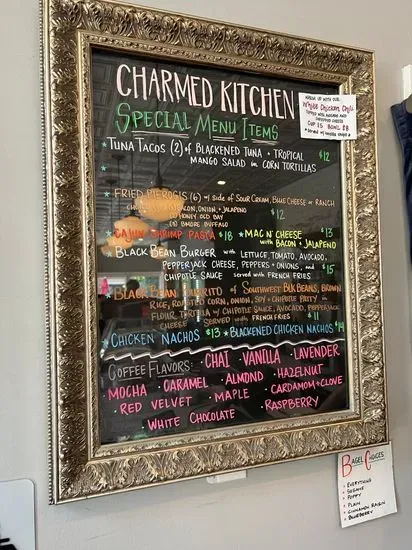 CHARMED KITCHEN
Special Menu Items
* TUNA TACOS (2) OF BLACKENED TUNA + TROPICAL $12
MANGO SALAD IN CORN TORTILLAS
* FRIED PIEROGIS (6) W/ SIDE OF SOUR CREAM, BLUE CHEESE OR RANCH
BACON, ONION, + JALAPENO
HONEY OLD BAY $12
BUFFALO
* CAJUN SHRIMP PASTA $18 * MAC N' CHEESE $13
WITH BACON + JALAPENO
* BLACK BEAN BURGER WITH LETTUCE, TOMATO, AVOCADO,
PEPPERJACK CHEESE, PEPPERS + ONIONS, AND
CHIPOTLE SAUCE SERVED WITH FRENCH FRIES $15
* BLACK BEAN BURRITO OF SOUTHWEST BLK BEANS, BROWN
RICE, ROASTED CORN, ONION, SOY + CHIPOTLE PATTY IN
FLOUR TORTILLA W/ CHIPOTLE SAUCE, AVOCADO, PEPPERJACK
CHEESE SERVED WITH FRENCH FRIES $11
* CHICKEN NACHOS $13 * BLACKENED CHICKEN NACHOS $14
COFFEE FLAVORS: · CHAI · VANILLA · LAVENDER
MOCHA · CARAMEL · ALMOND · HAZELNUT
· RED VELVET · MAPLE · CARDAMOM+CLOVE
· WHITE CHOCOLATE · RASPBERRY
WARM UP WITH OUR
White Chicken Chili
TOPPED WITH AVOCADO AND
CHEDDAR CHEESE
CUP $5 BOWL $8
BAGEL CHOICES
• EVERYTHING
• SESAME
• POPPY
• PLAIN
• CINNAMON RAISIN
• BLUEBERRY